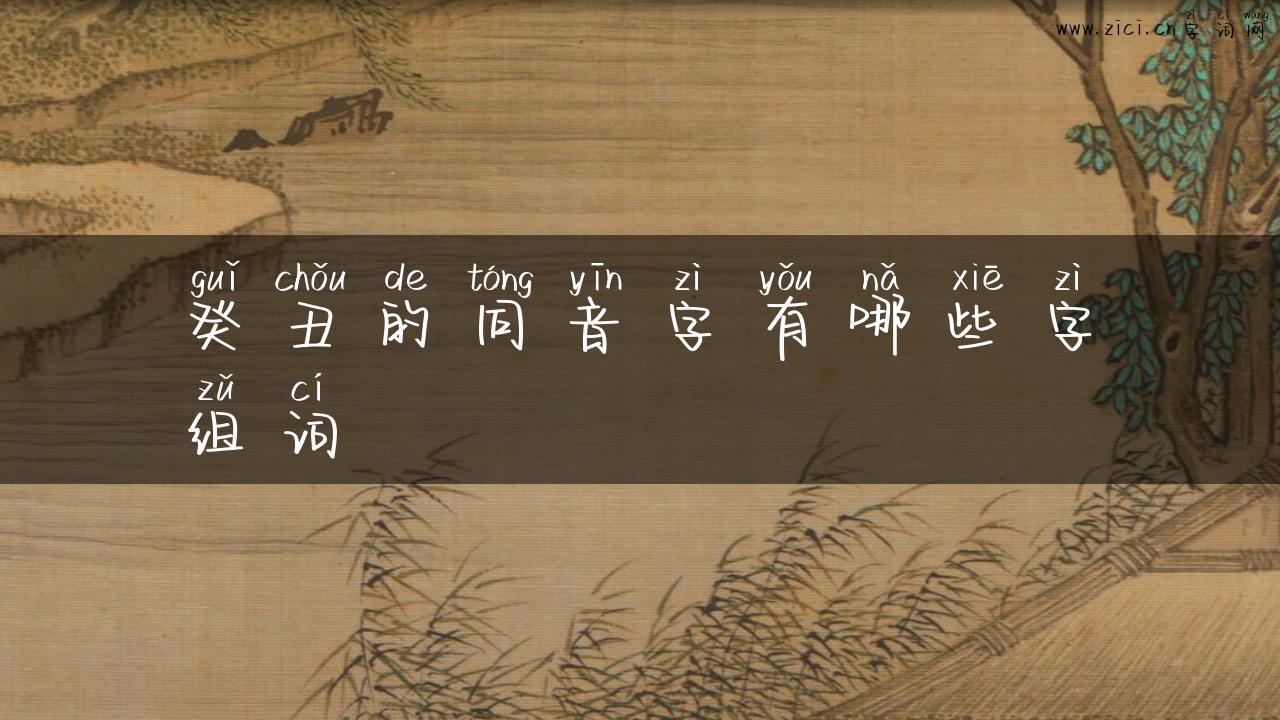 zì cí wǎng
www.zici.cn字词网
guǐ chǒu de tóng yīn zì yǒu nǎ xiē zì
癸丑的同音字有哪些字
zǔ cí
组词